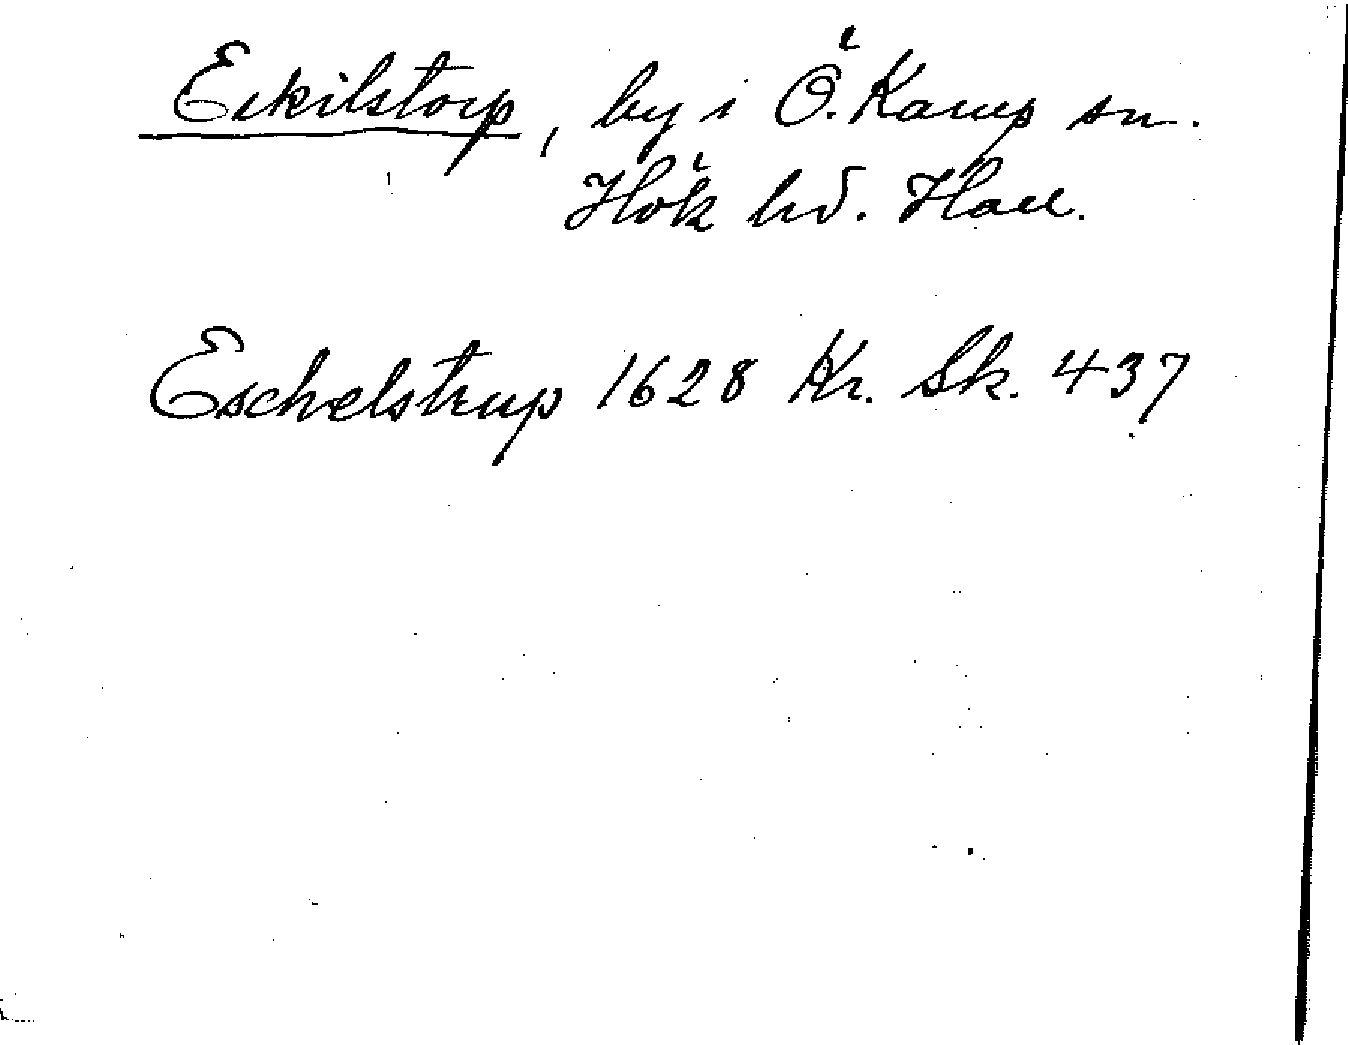 Eskilstorp, by i Ö. Karup sn.
Hök hd. Hall.
Eschelstrup 1628 Kr. Sk. 437